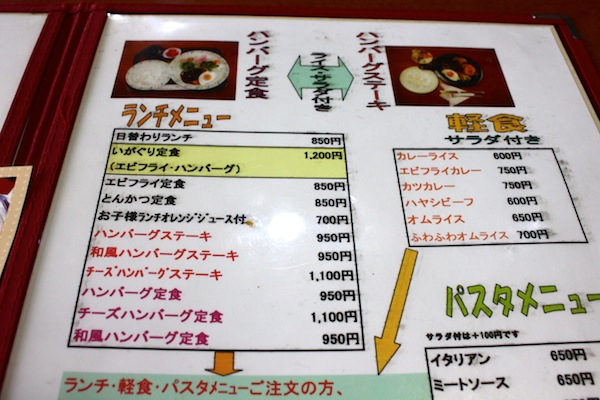 ハンバーグ定食
ライス・サラダ付き
ハンバーグステーキ
ランチメニュー
日替わりランチ 850円
いがぐり定食 1,200円
(エビフライ・ハンバーグ)
エビフライ定食 850円
とんかつ定食 850円
お子様ランチオレンジジュース付 700円
ハンバーグステーキ 950円
和風ハンバーグステーキ 950円
チーズハンバーグステーキ 1,100円
ハンバーグ定食 950円
チーズハンバーグ定食 1,100円
和風ハンバーグ定食 950円
軽食
サラダ付き
カレーライス 600円
エビフライカレー 750円
カツカレー 750円
ハヤシビーフ 600円
オムライス 650円
ふわふわオムライス 700円
パスタメニュー
サラダ付は+100円です
イタリアン 650円
ミートソース 650円
650円
ランチ・軽食・パスタメニューご注文の方、